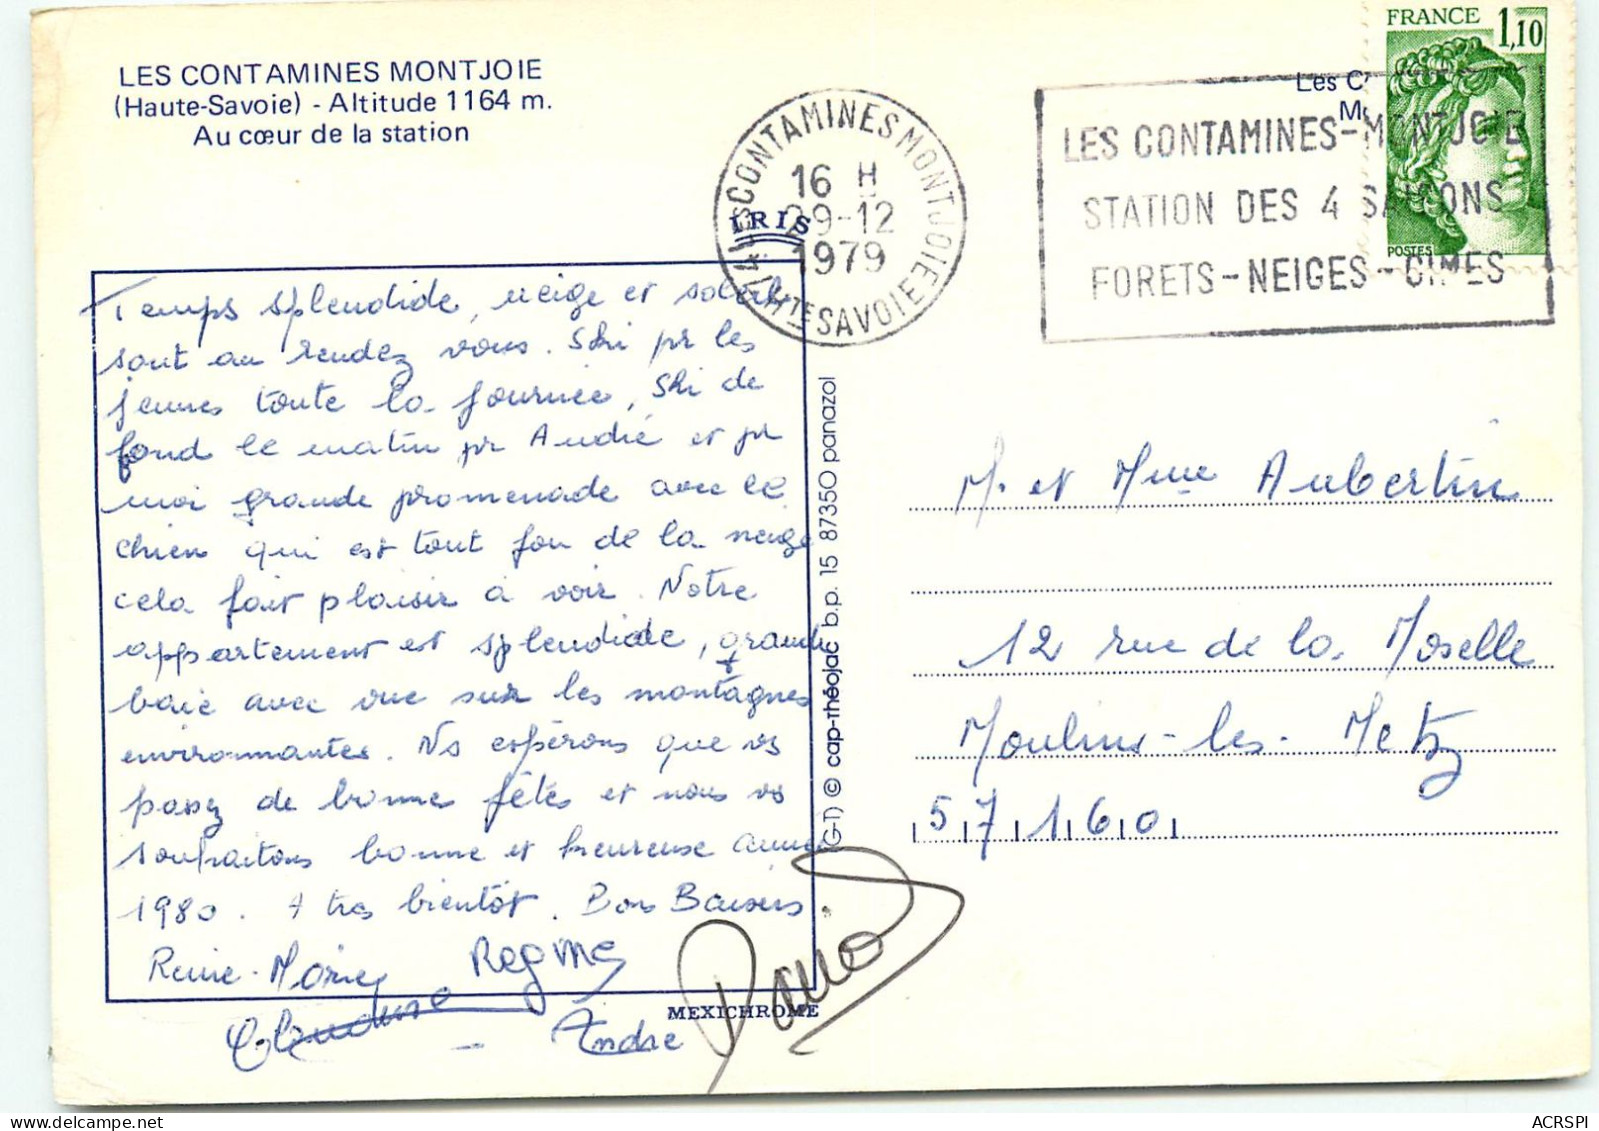 LES CONTAMINES MONTJOIE
(Haute-Savoie) - Altitude 1164 m.
Au cœur de la station
IRIS
Temps splendide, neige et soleil
sont au rendez vous. Ski pr les
jeunes toute la journée, Ski de
fond le matin pr André et pr
moi grande promenade avec le
chien qui est tout fou de la neige
cela fait plaisir à voir. Notre
appartement est splendide, grande
baie avec vue sur les montagnes
environnantes. Ns espérons que vs
passez de bonne fêtes et nous vs
souhaitons bonne et heureuse année
1980. A très bientôt. Bons Baisers.
Reine-Marie Regine
Claudine - Andre
MEXICHROME
(G-1) © cap-théojac b.p. 15 87350 panazol
74 LES CONTAMINES MONTJOIE
16 H
29-12
1979
HTE SAVOIE
Les C
M
LES CONTAMINES-MONTJOIE
STATION DES 4 SAISONS
FORETS-NEIGES-CIMES
FRANCE 1,10
POSTES
M. et Mme Aubertin
12 rue de la Moselle
Moulins-les-Metz
57160
ACRSPI